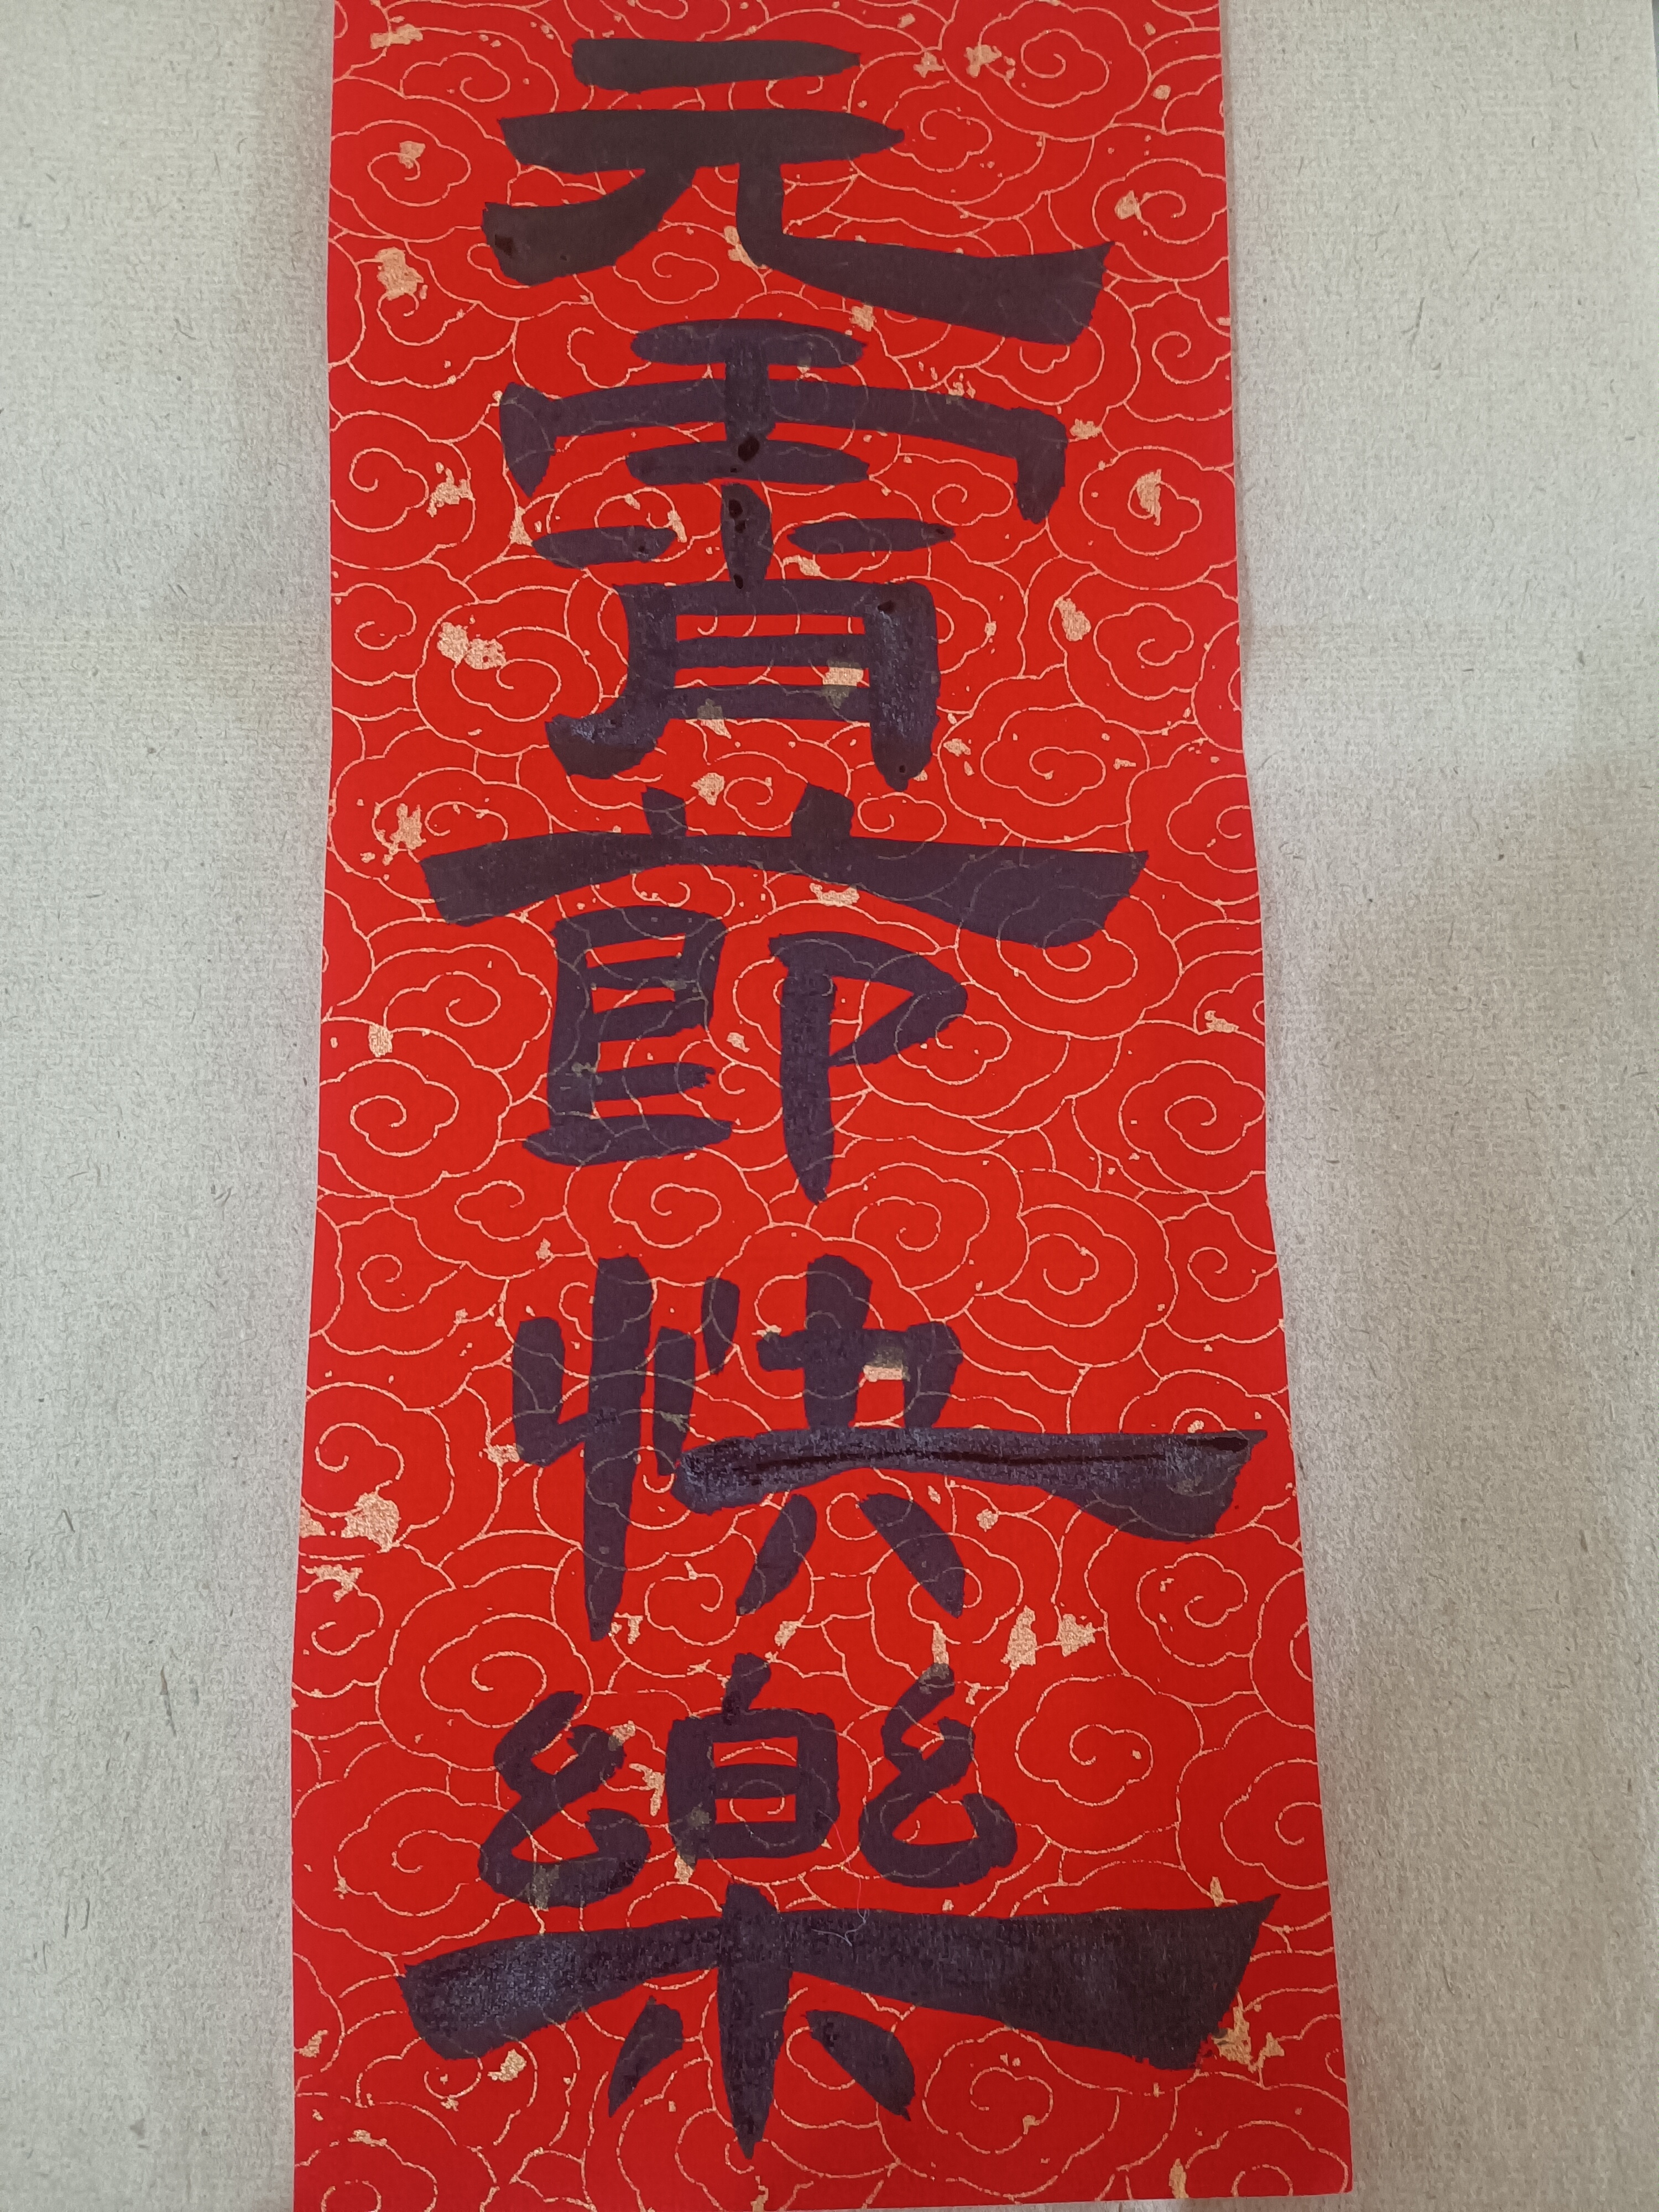 元宵莭快樂